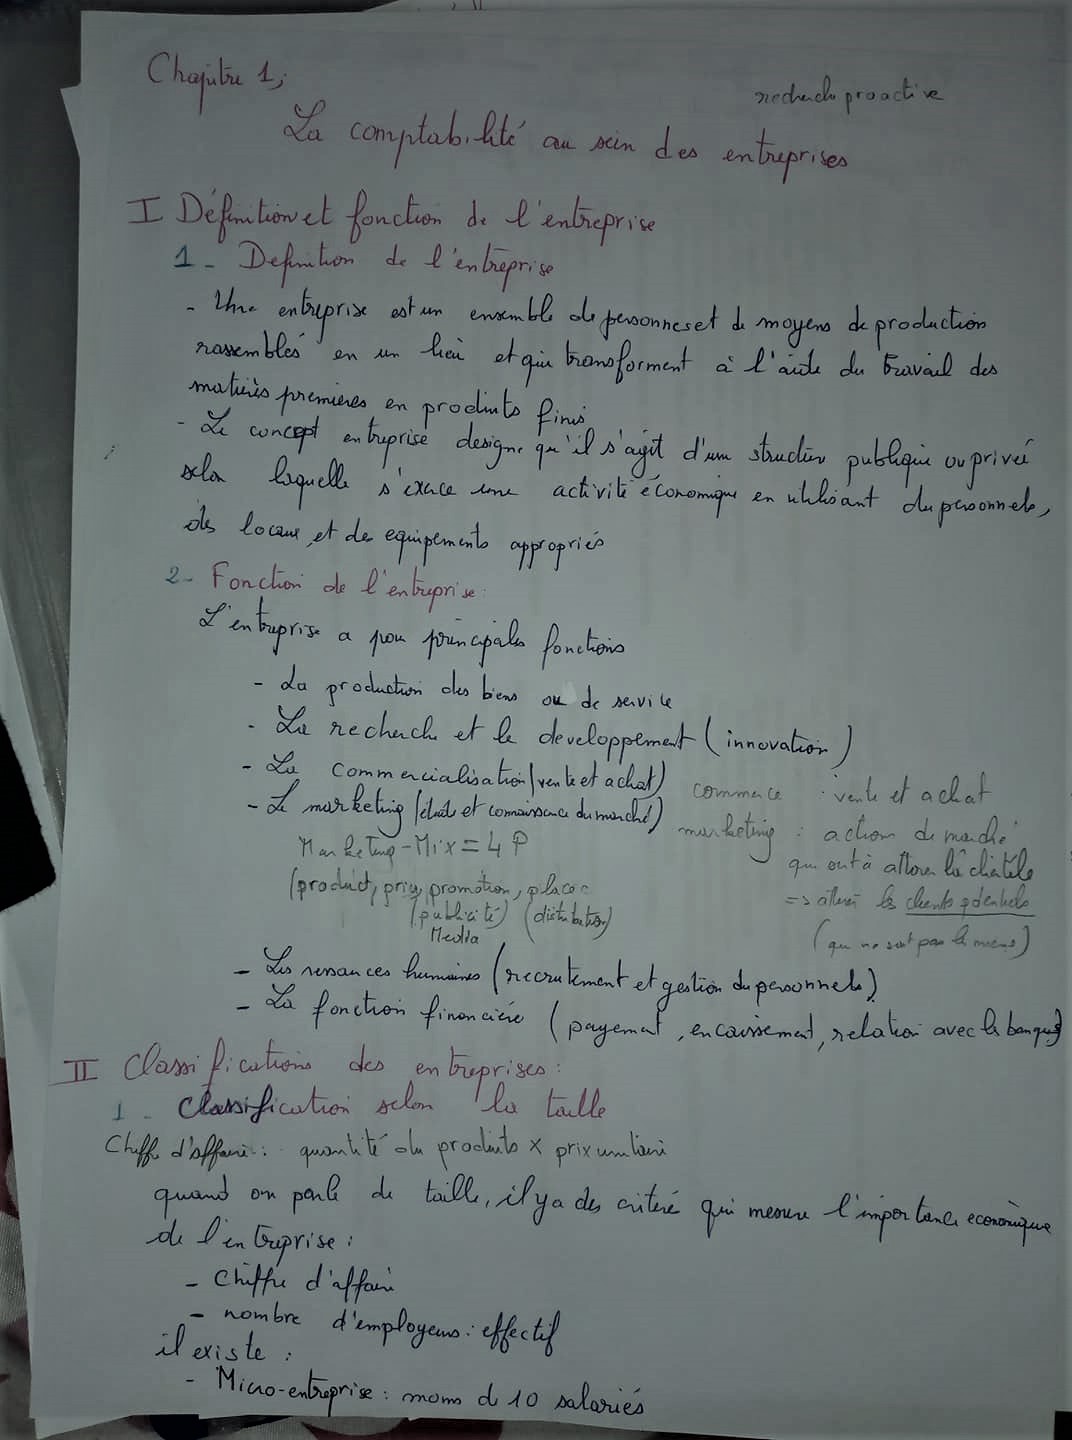 Chapitre 1;
recherche proactive
La comptabilité au sein des entreprises
I Définition et fonction de l'entreprise
1 - Definition de l'entreprise
- Une entreprise est un ensemble de personnes et de moyens de production
rassemblés en un lieu et qui transforment à l'aide du travail des
matières premières en produits finis
- Le concept entreprise designe qu'il s'agit d'une structure publique ou privée
selon laquelle s'exerce une activité économique en utilisant du personnels,
des locaux, et des equipements appropriés
2 - Fonction de l'entreprise:
L'entreprise a pour principales fonctions
- La production des biens ou de service
- La recherche et le developpement (innovation)
- La commercialisation (vente et achat) commerce : vente et achat
- Le marketing (étude et connaissance du marché) marketing : action de marché
Marketing-Mix = 4 P qui ont à attirer la clientèle
(product, price, promotion, place) => attirer les clients potentiels
(publicité) (distribution) (qui ne sont pas les miens)
Media
- Les ressources humaines (recrutement et gestion du personnels)
- La fonction financière (payement, encaissement, relation avec les banques)
II Classifications des entreprises:
1 - Classification selon la taille
Chiffre d'affaire : quantité du produits x prix unitaire
quand on parle de taille, il y a des critère qui mesure l'importance economique
de l'entreprise :
- Chiffre d'affaire
- nombre d'employeurs : effectif
il existe :
- Micro-entreprise : moins de 10 salariés